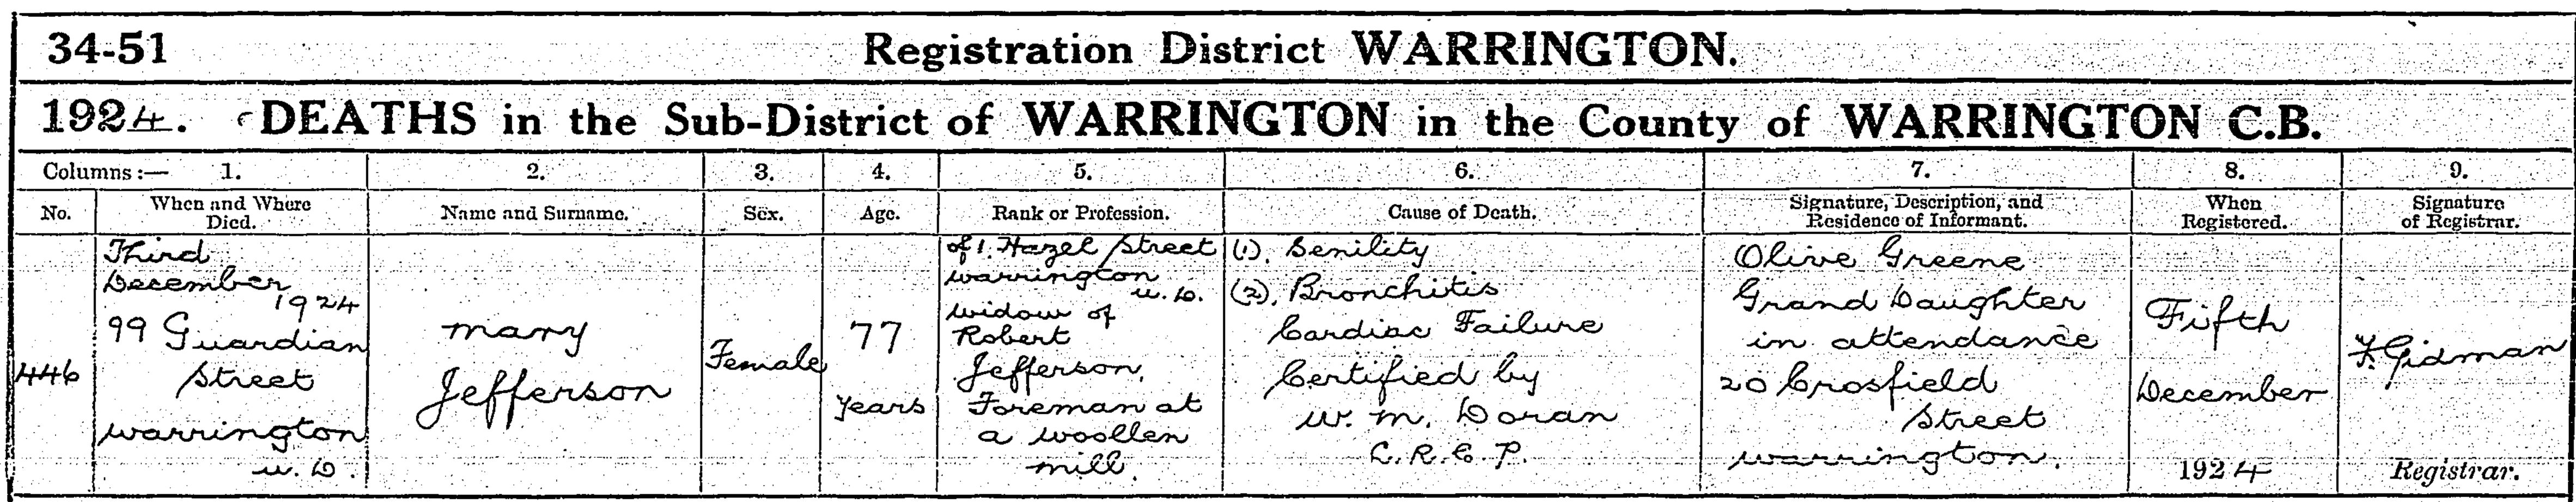 34-51 Registration District WARRINGTON.
1924. DEATHS in the Sub-District of WARRINGTON in the County of WARRINGTON C.B.
Columns:— 1. 2. 3. 4. 5. 6. 7. 8. 9.
No.
When and Where
Died.
Name and Surname.
Sex.
Age.
Rank or Profession.
Cause of Death.
Signature, Description, and
Residence of Informant.
When
Registered.
Signature
of Registrar.
446
Third
December
1924
99 Guardian
Street
Warrington
u.D.
Mary
Jefferson
Female
77
Years
of 1. Hazel Street
Warrington
u.D.
Widow of
Robert
Jefferson,
Foreman at
a woollen
mill.
(1). Senility
(2). Bronchitis
Cardiac Failure
Certified by
W. M. Doran
L.R.C.P.
Olive Greene
Grand Daughter
in attendance
20 Crosfield
Street
Warrington.
Fifth
December
1924
F. Gidman
Registrar.